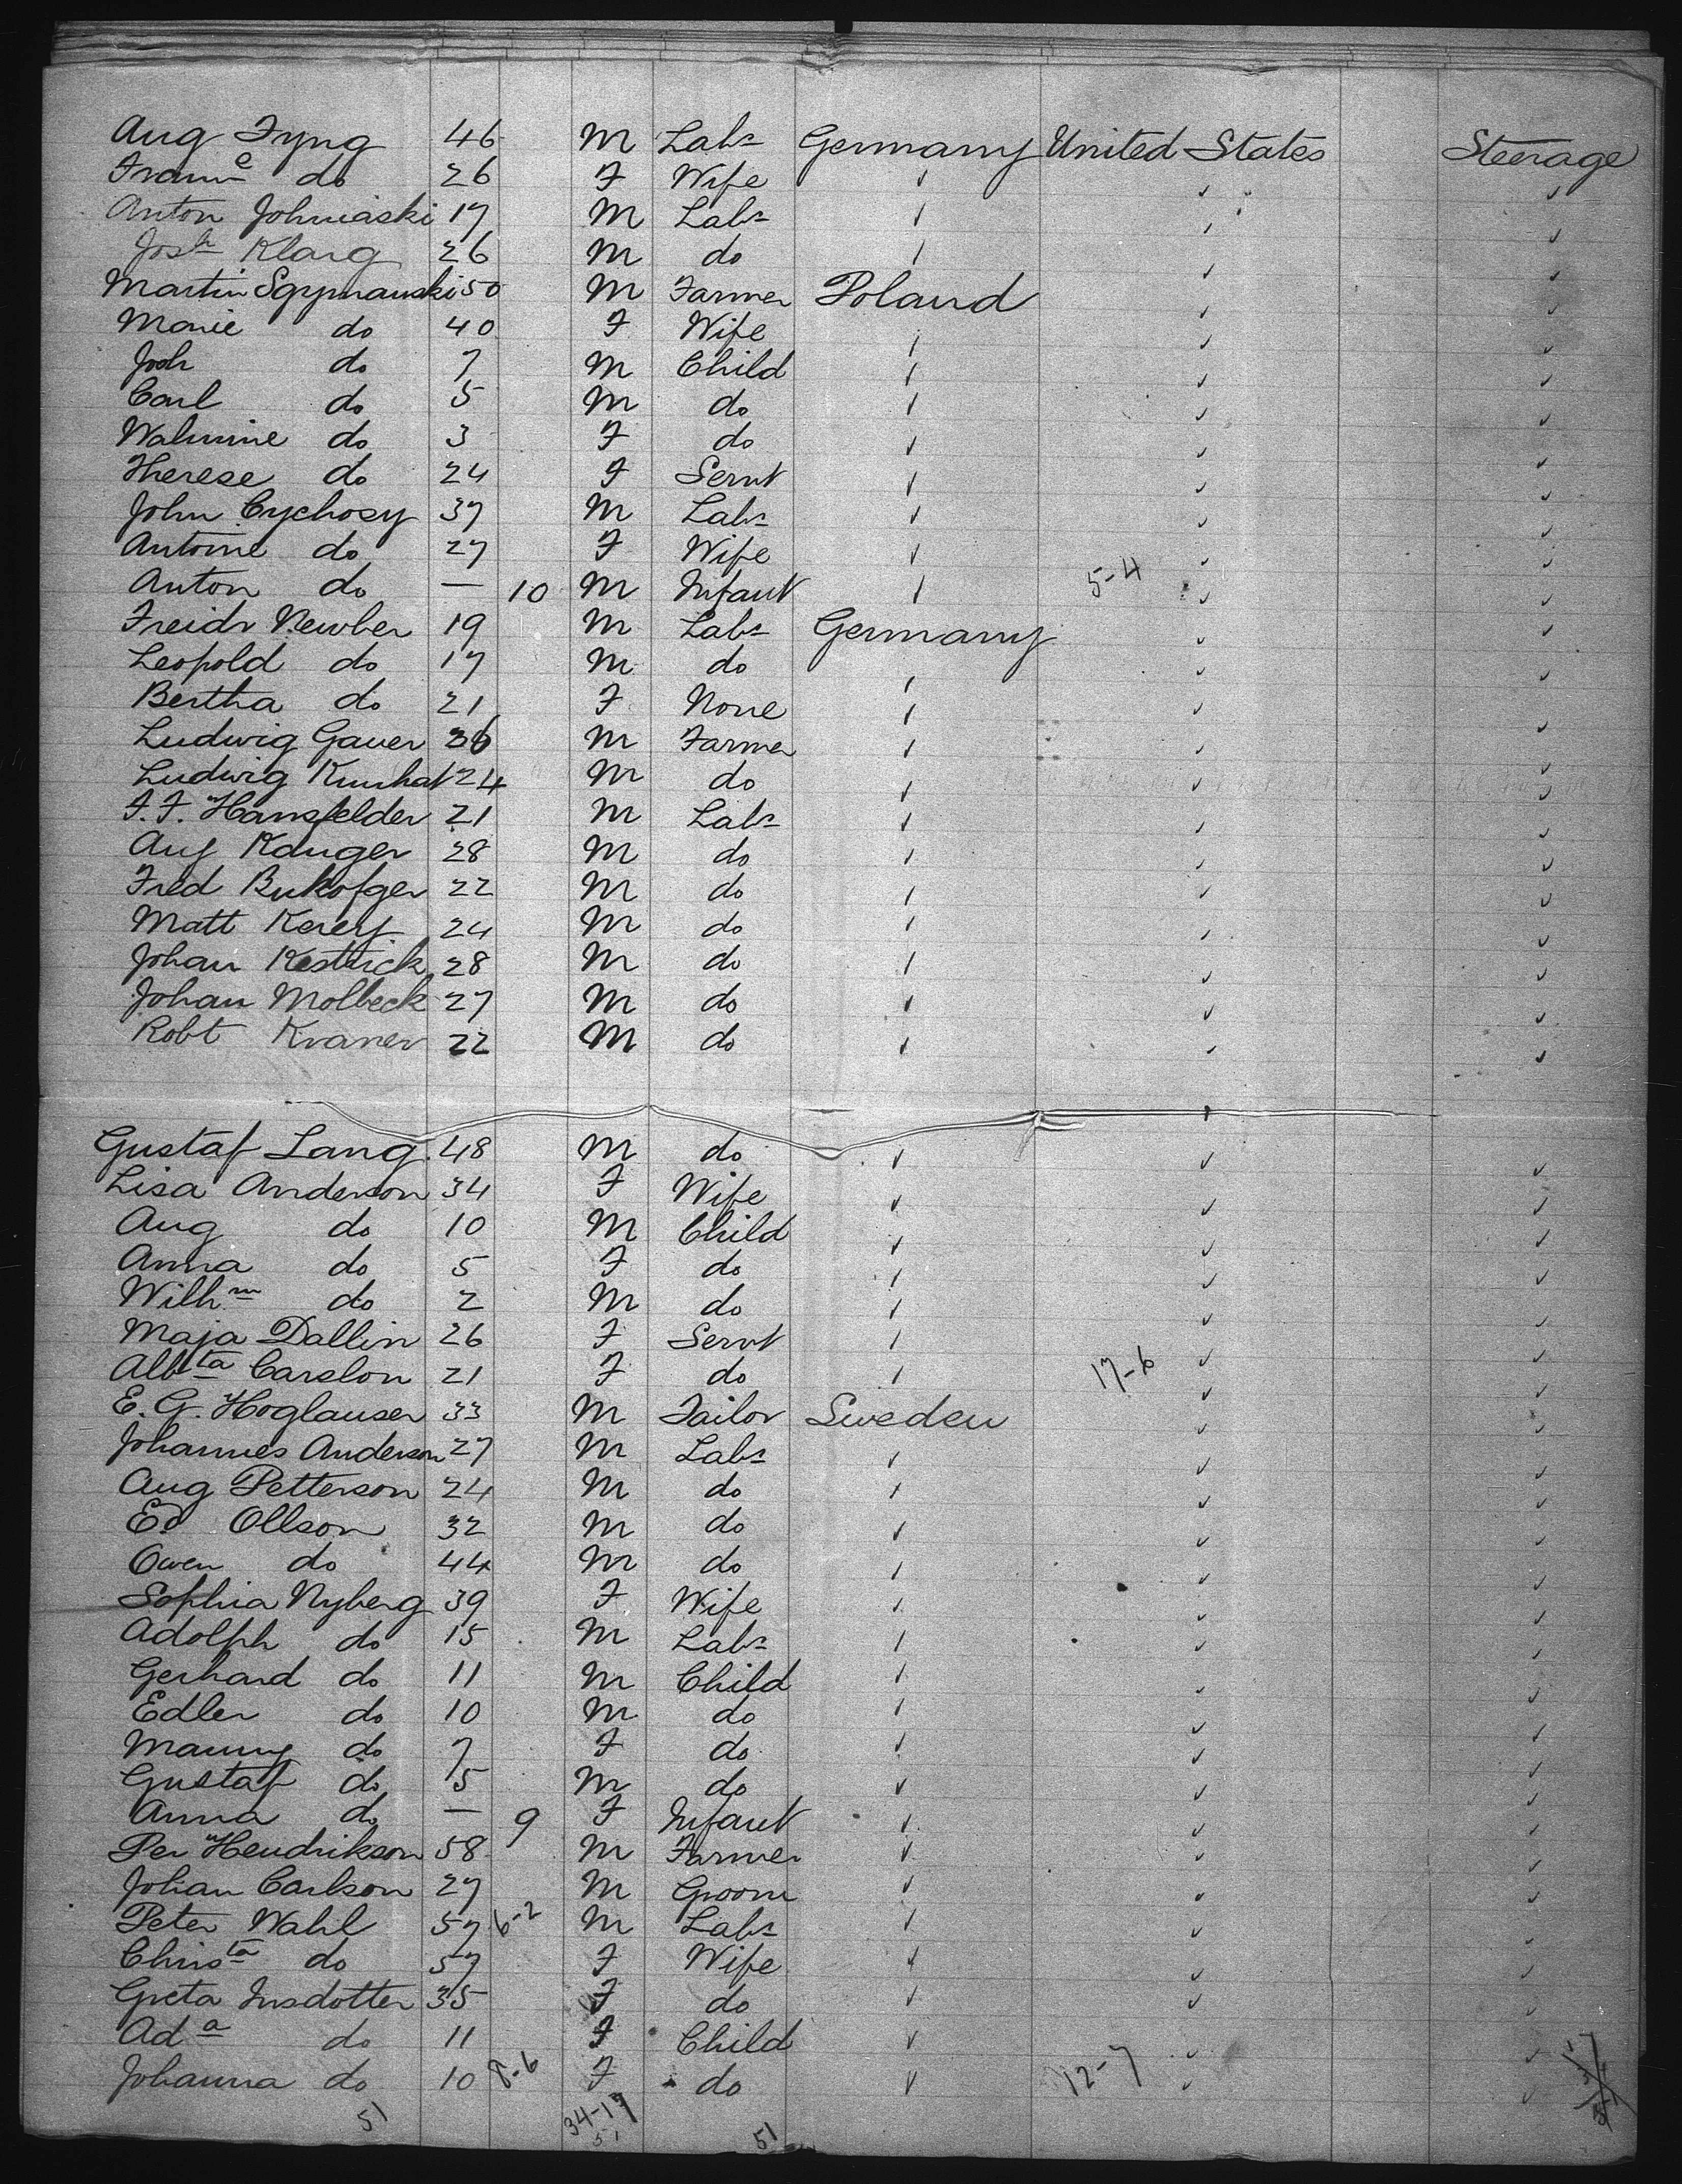 Aug Tyng 46 M Labr Germany United States Steerage
Frannce do 26 F Wife
Anton Johniaski 17 M Labr
Josh Klarg 26 M do
Martin Sgymanski 50 M Farmer Poland
Marie do 40 F Wife
Josh do 7 M Child
Carl do 5 M do
Walmine do 3 F do
Therese do 24 F Servt
John Cychosy 37 M Labr
Antoine do 27 F Wife
Anton do — 10 M Infant 5-4
Freidr Newber 19 M Labr Germany
Leopold do 17 M do
Bertha do 21 F None
Ludwig Gauer 26 M Farmer
Ludwig Kunhat 24 M do
F. F. Hansfelder 21 M Labr
Aug Kanger 28 M do
Fred Bukofger 22 M do
Matt Kerey 24 M do
Johan Kestrick 28 M do
Johan Molbeck 27 M do
Robt Kraner 22 M do
Gustaf Lang 48 M do
Lisa Anderson 34 F Wife
Aug do 10 M Child
Anna do 5 F do
Wilhm do 2 M do
Maja Dallin 26 F Servt
Albta Carslon 21 F do 17-6
E. G. Hoglauser 33 M Tailor Sweden
Johannes Anderson 27 M Labr
Aug Petterson 24 M do
Ed Ollson 32 M do
Owen do 44 M do
Sophia Nyberg 39 F Wife
Adolph do 15 M Labr
Gerhard do 11 M Child
Edler do 10 M do
Manny do 7 F do
Gustaf do 5 M do
Anna do — 9 F Infant
Per Hendrikson 58 M Farmer
Johan Carlson 27 M Groom
Peter Wahl 57 6-2 M Labr
Christa do 57 F Wife
Greta Insdotter 35 F do
Ada do 11 F Child
Johanna do 10 8-6 F do 12-7
51 34-17 51
51